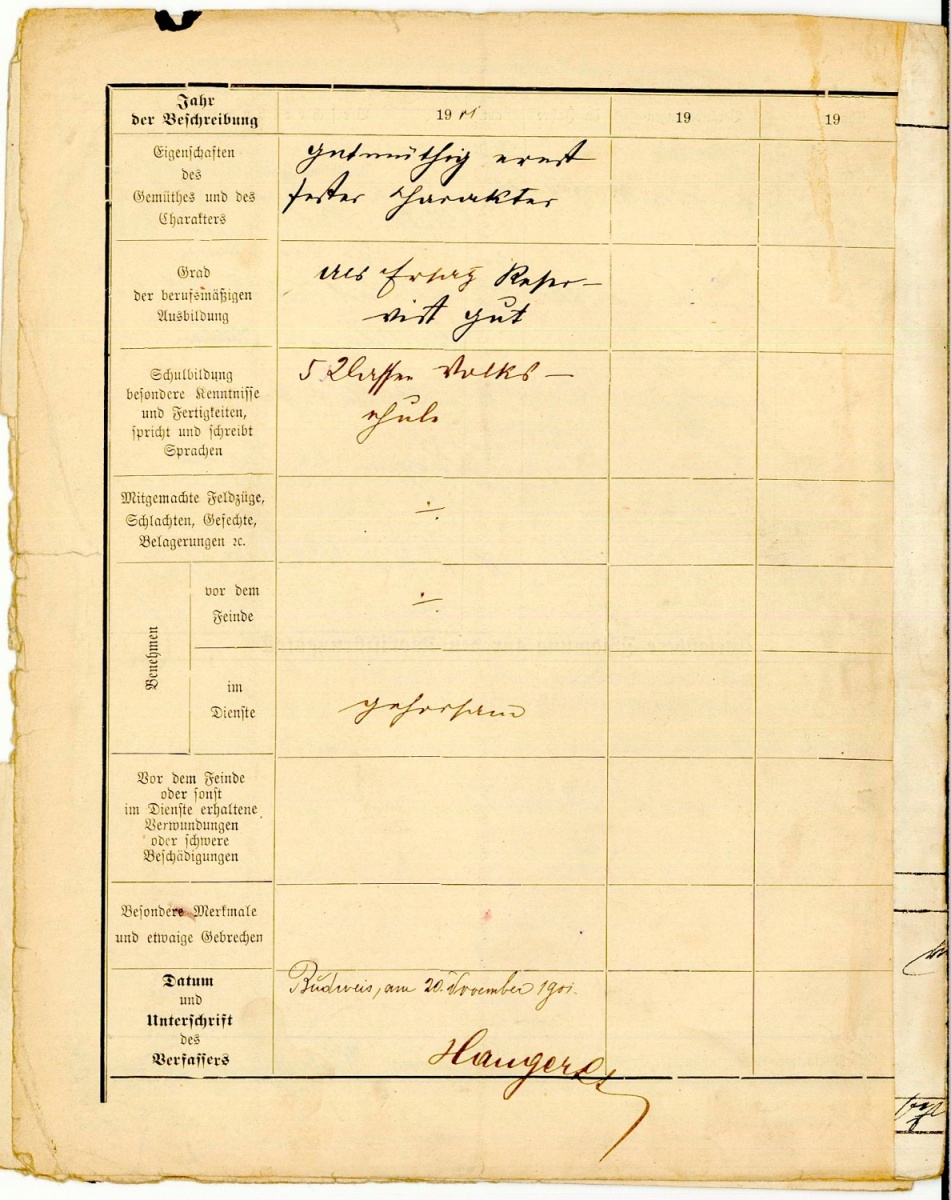 Jahr
der Beschreibung
1901
19
19
Eigenschaften
des
Gemüthes und des
Charakters
gutmüthig ernst
fester Charakter
Grad
der berufsmäßigen
Ausbildung
als Ersatz Reser-
vist gut
Schulbildung
besondere Kenntnisse
und Fertigkeiten,
spricht und schreibt
Sprachen
5 Klassen Volks-
schule
Mitgemachte Feldzüge,
Schlachten, Gefechte,
Belagerungen ꝛc.
÷
Benehmen
vor dem
Feinde
÷
im
Dienste
gehorsam
Vor dem Feinde
oder sonst
im Dienste erhaltene
Verwundungen
oder schwere
Beschädigungen
Besondere Merkmale
und etwaige Gebrechen
Datum
und
Unterschrift
des
Verfassers
Budweis, am 20. November 1901.